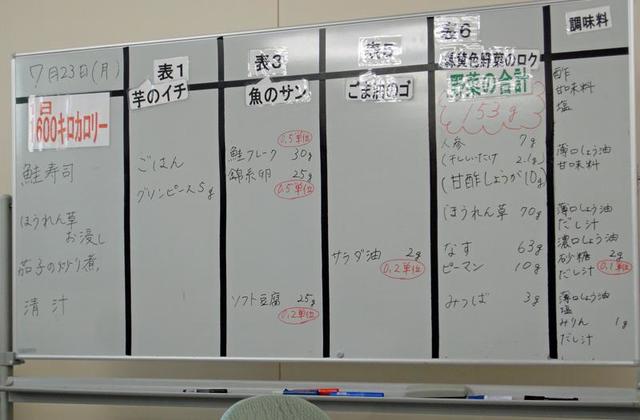 7月23日(月)
1日
1600キロカロリー
鮭寿司
ほうれん草
お浸し
茄子の炒り煮
清汁
表1
芋のイチ
ごはん
グリンピース5g
表3
魚のサン
0.5単位
鮭フレーク 30g
錦糸卵 25g
0.5単位
ソフト豆腐 25g
0.2単位
表5
ごま油のゴ
サラダ油 2g
0.2単位
表6
緑黄色野菜のロク
野菜の合計
153g
人参 7g
(干ししいたけ 2.1g
(甘酢しょうが10g)
ほうれん草 70g
なす 63g
ピーマン 10g
みつば 3g
調味料
酢
甘味料
塩
薄口しょう油
甘味料
薄口しょう油
だし汁
濃口しょう油
砂糖 2g
だし汁 0.1単位
薄口しょう油
塩
みりん 1g
だし汁